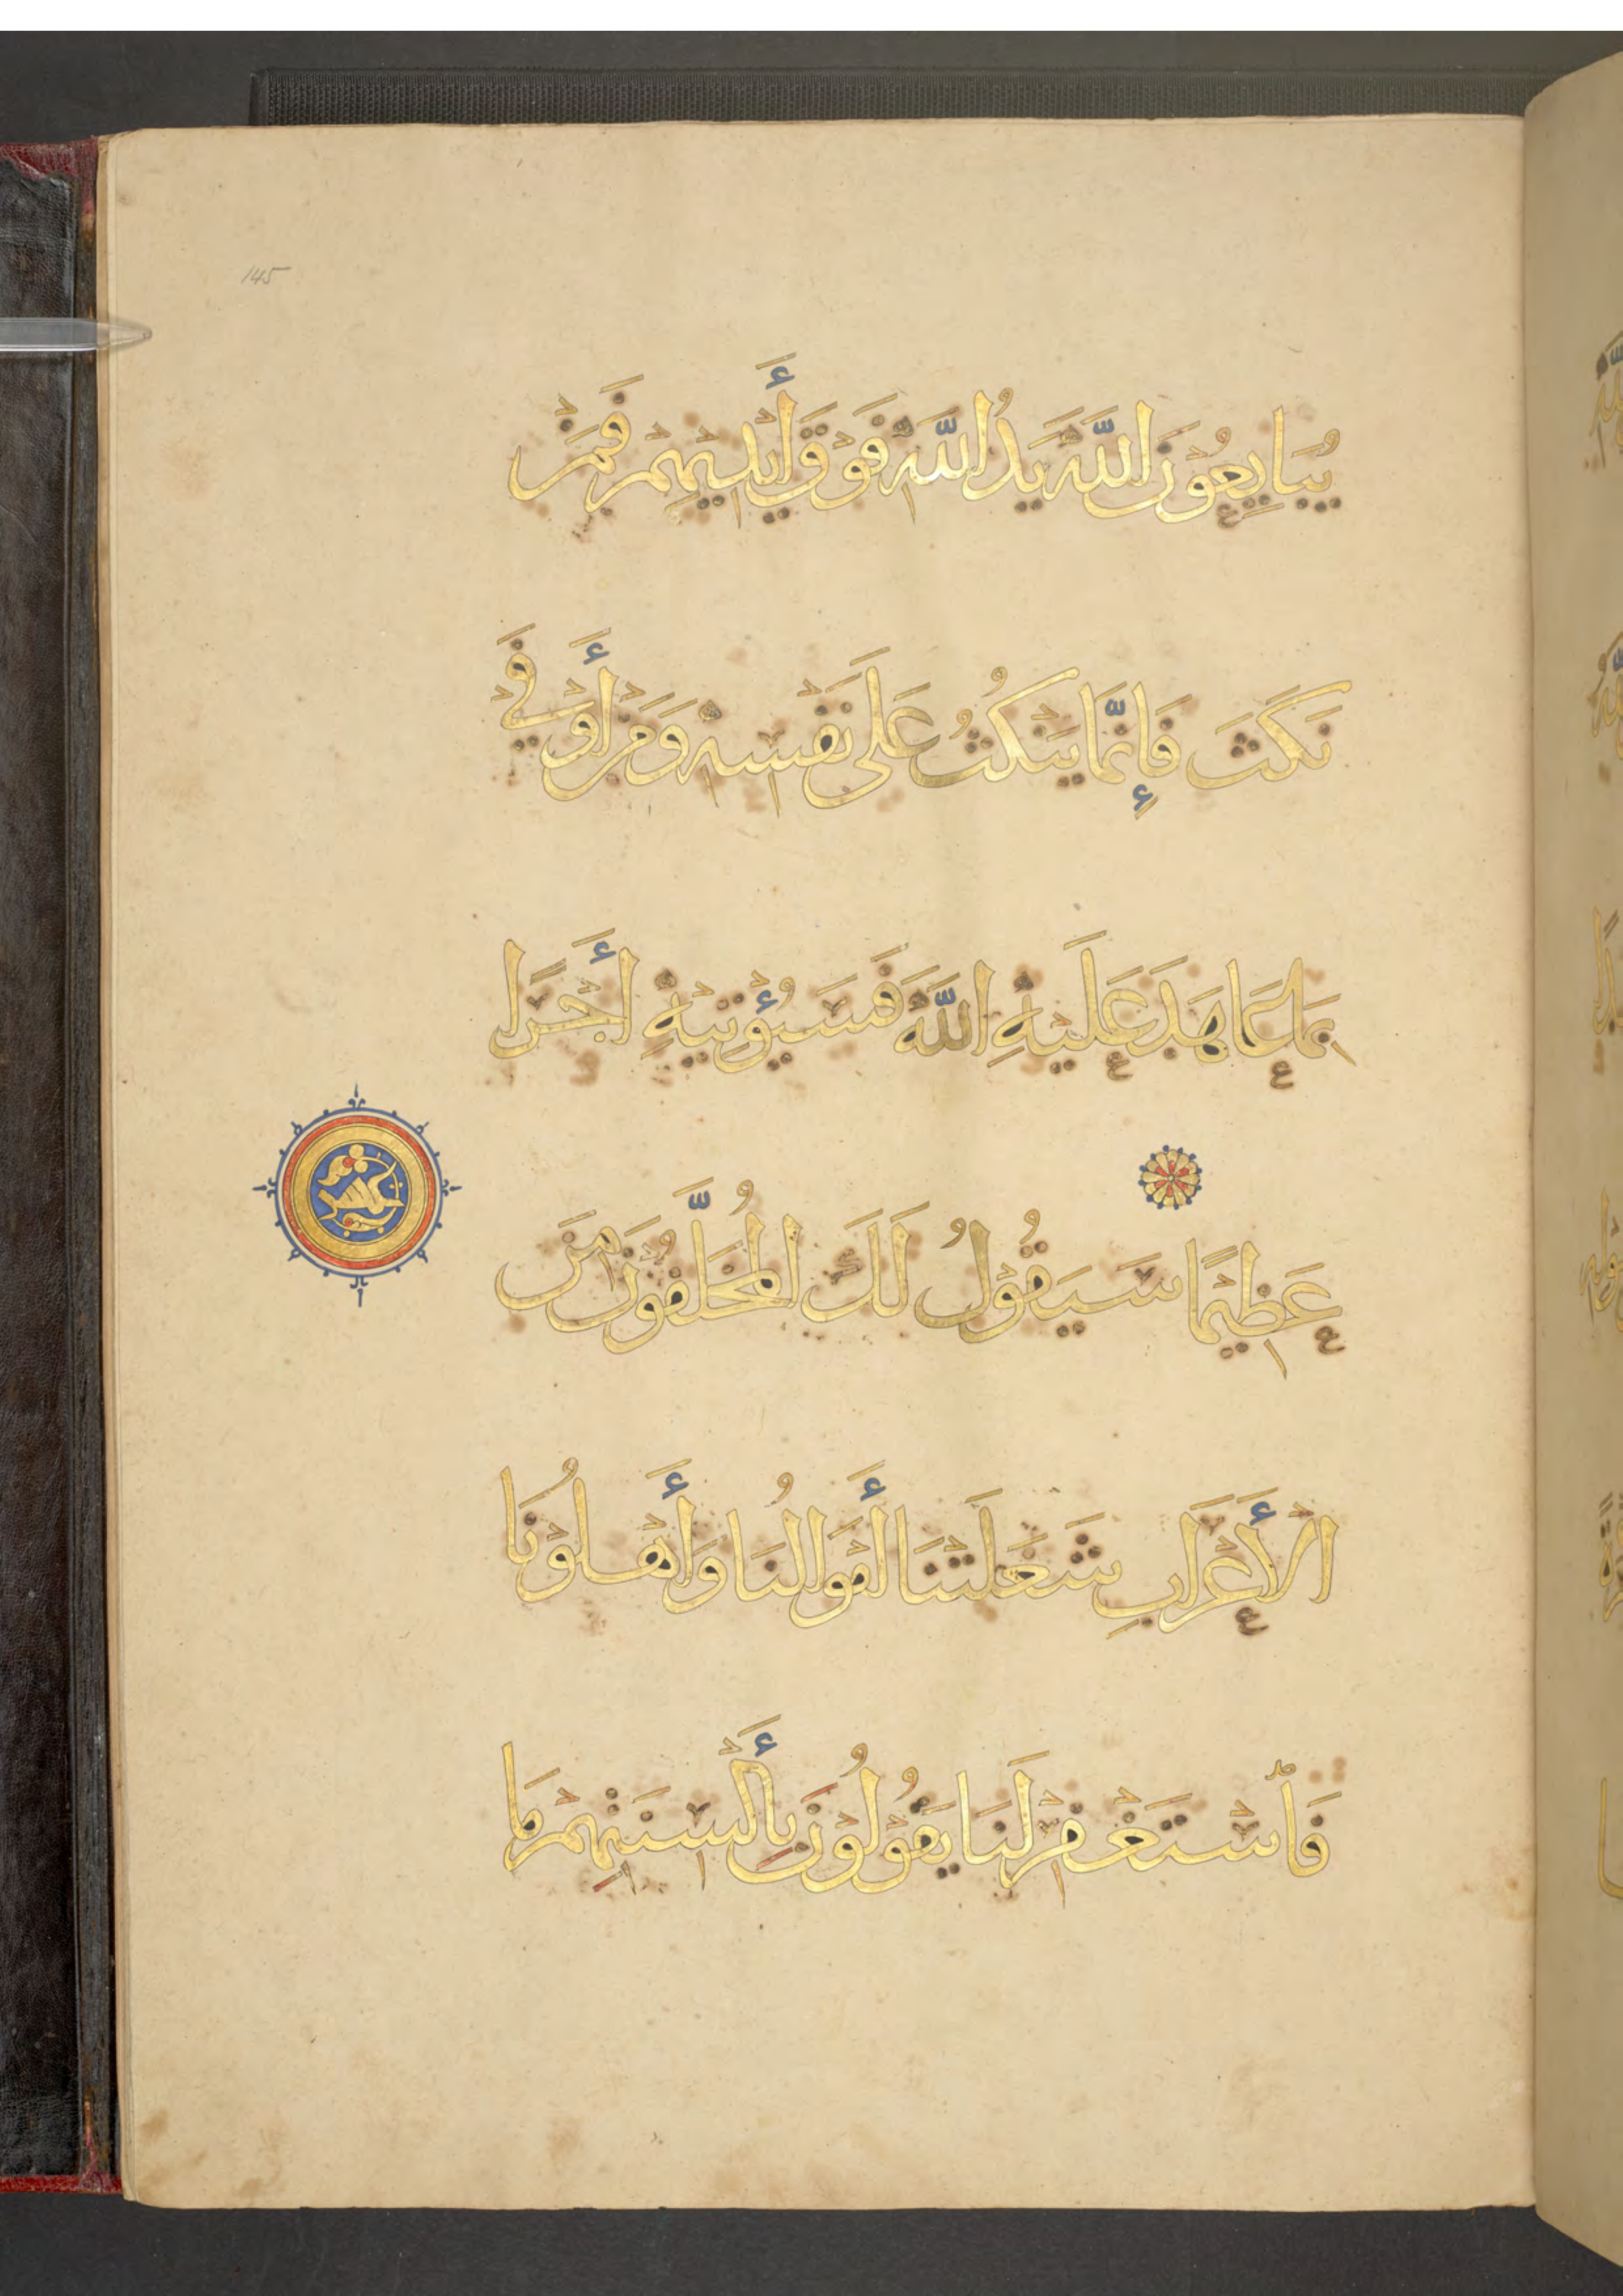 145
يُبَايِعُوْنَ اللَّهَ يَدُ اللَّهِ فَوْقَ أَيْدِيْهِمْ فَمَنْ
نَكَثَ فَإِنَّمَا يَنْكُثُ عَلَى نَفْسِهِ وَمَنْ أَوْفَى
بِمَا عَاهَدَ عَلَيْهِ اللَّهَ فَسَيُؤْتِيْهِ أَجْرًا
عَظِيْمًا سَيَقُوْلُ لَكَ الْمُخَلَّفُوْنَ مِنَ
الْأَعْرَابِ شَغَلَتْنَا أَمْوَالُنَا وَأَهْلُوْنَا
فَاسْتَغْفِرْ لَنَا يَقُوْلُوْنَ بِأَلْسِنَتِهِمْ مَا